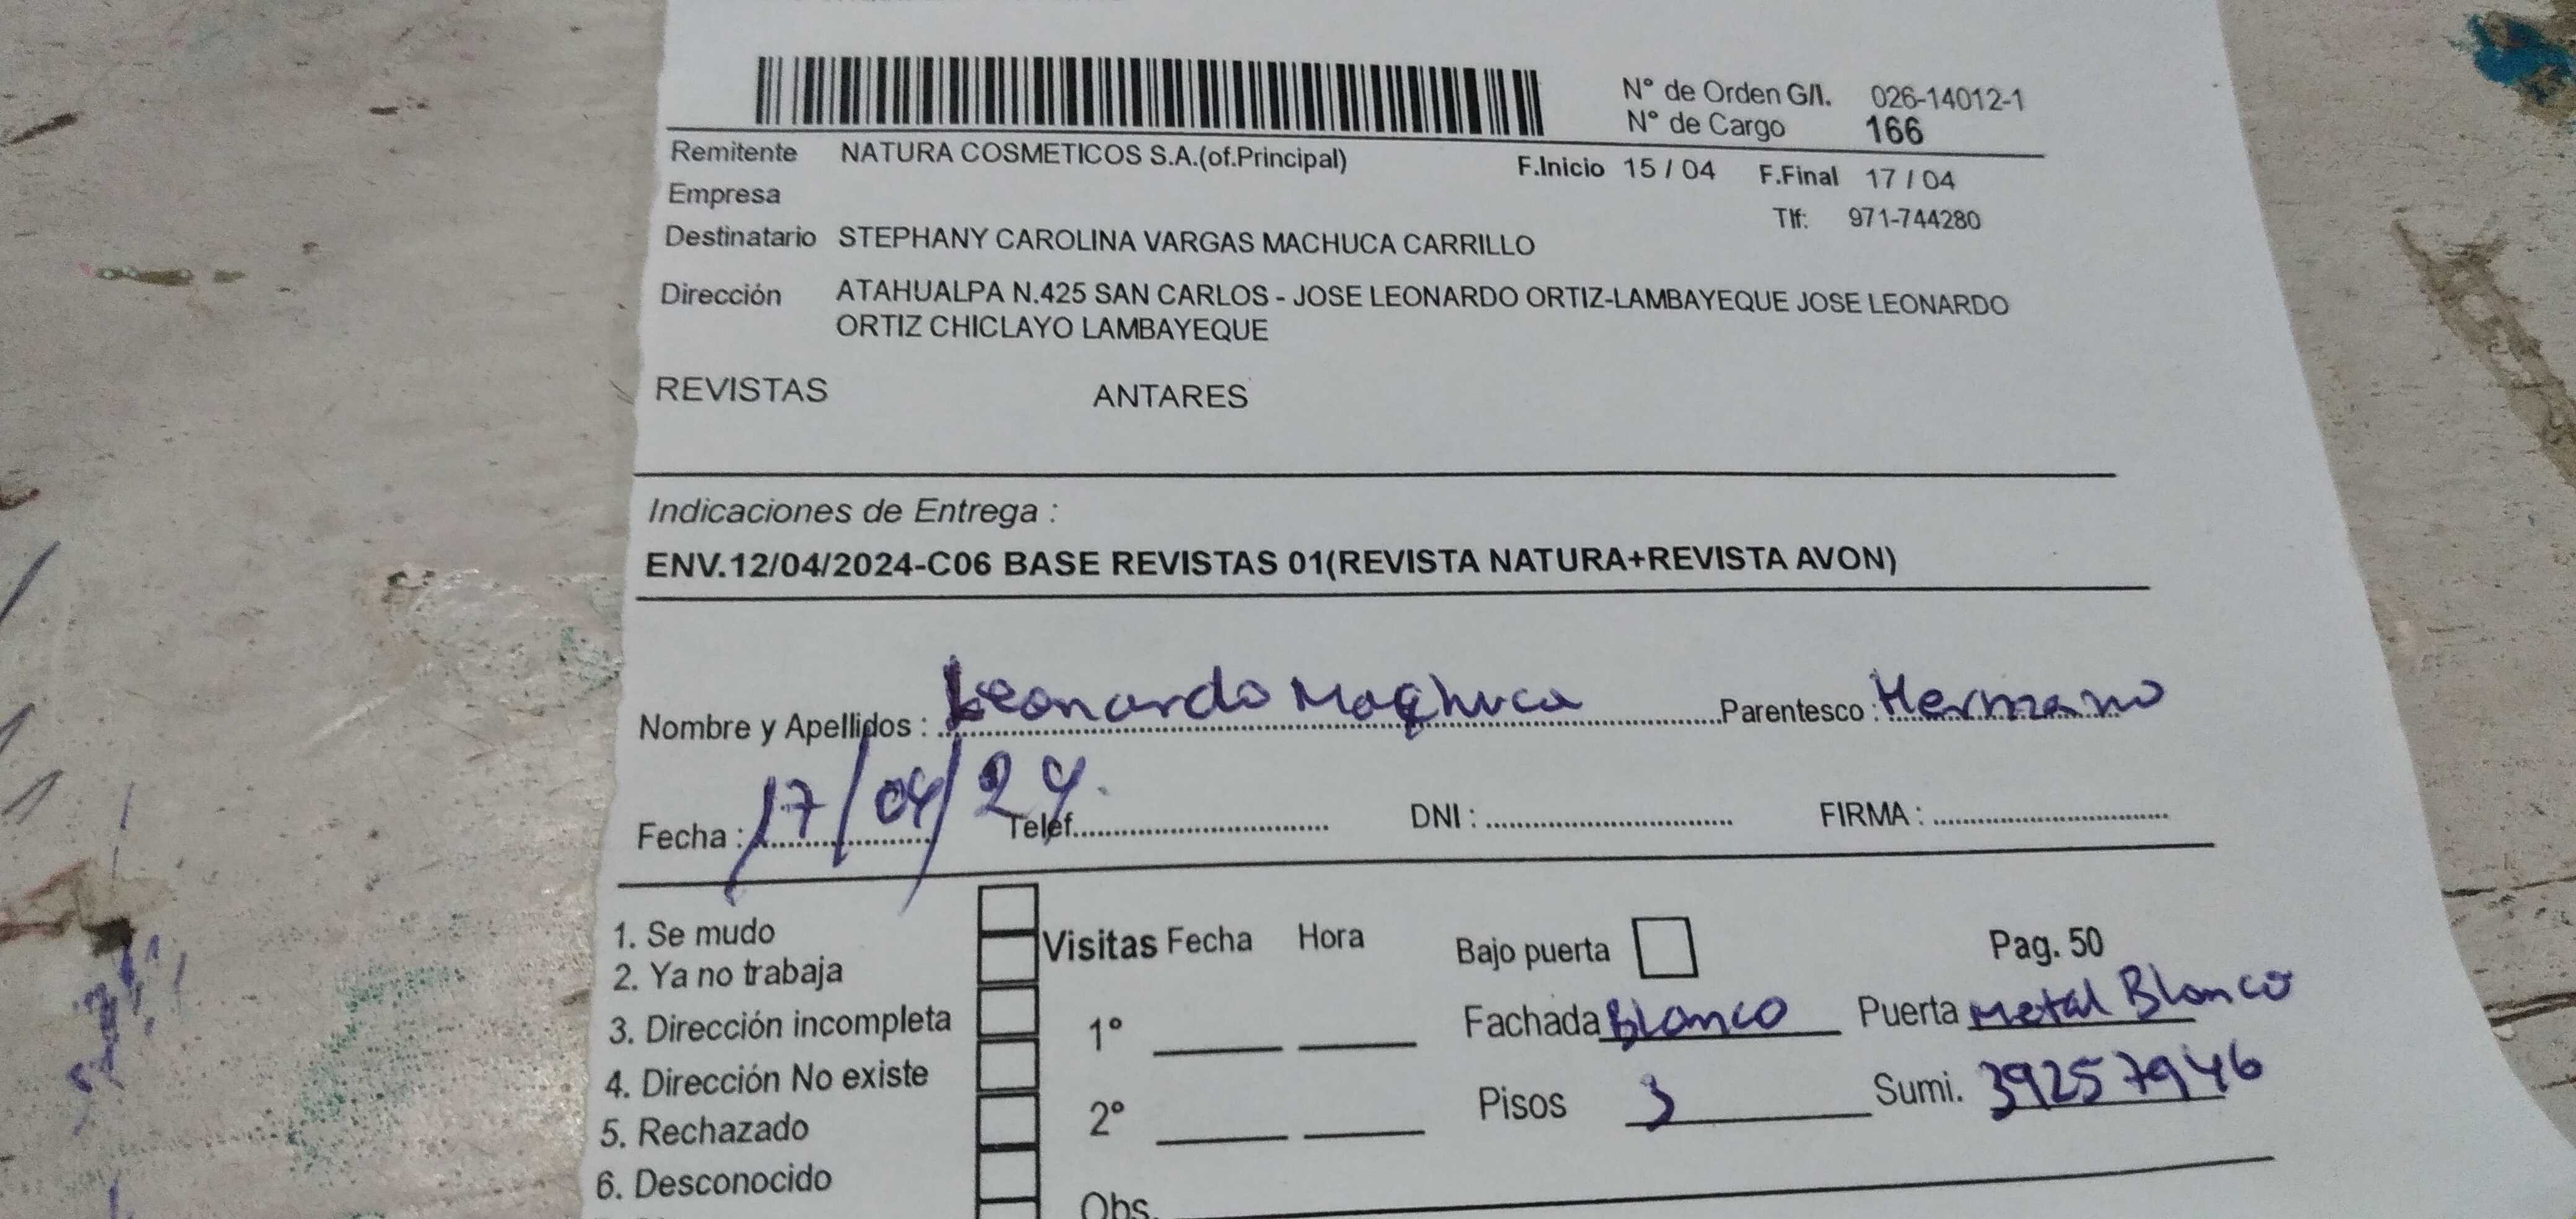 N° de Orden G/I. 026-14012-1
N° de Cargo 166
Remitente NATURA COSMETICOS S.A.(of.Principal) F.Inicio 15 / 04 F.Final 17 / 04
Empresa
Tlf: 971-744280
Destinatario STEPHANY CAROLINA VARGAS MACHUCA CARRILLO
Dirección ATAHUALPA N.425 SAN CARLOS - JOSE LEONARDO ORTIZ-LAMBAYEQUE JOSE LEONARDO
ORTIZ CHICLAYO LAMBAYEQUE
REVISTAS ANTARES
Indicaciones de Entrega :
ENV.12/04/2024-C06 BASE REVISTAS 01(REVISTA NATURA+REVISTA AVON)
Nombre y Apellidos : Leonardo Machuca Parentesco : Hermano
Fecha : 17/04/24. Telef. DNI : FIRMA :
1. Se mudo
2. Ya no trabaja
3. Dirección incompleta
4. Dirección No existe
5. Rechazado
6. Desconocido
Visitas Fecha Hora
1°
2°
Obs.
Bajo puerta Pag. 50
Fachada Blanco Puerta Metal Blanco
Pisos 3 Sumi. 39257946